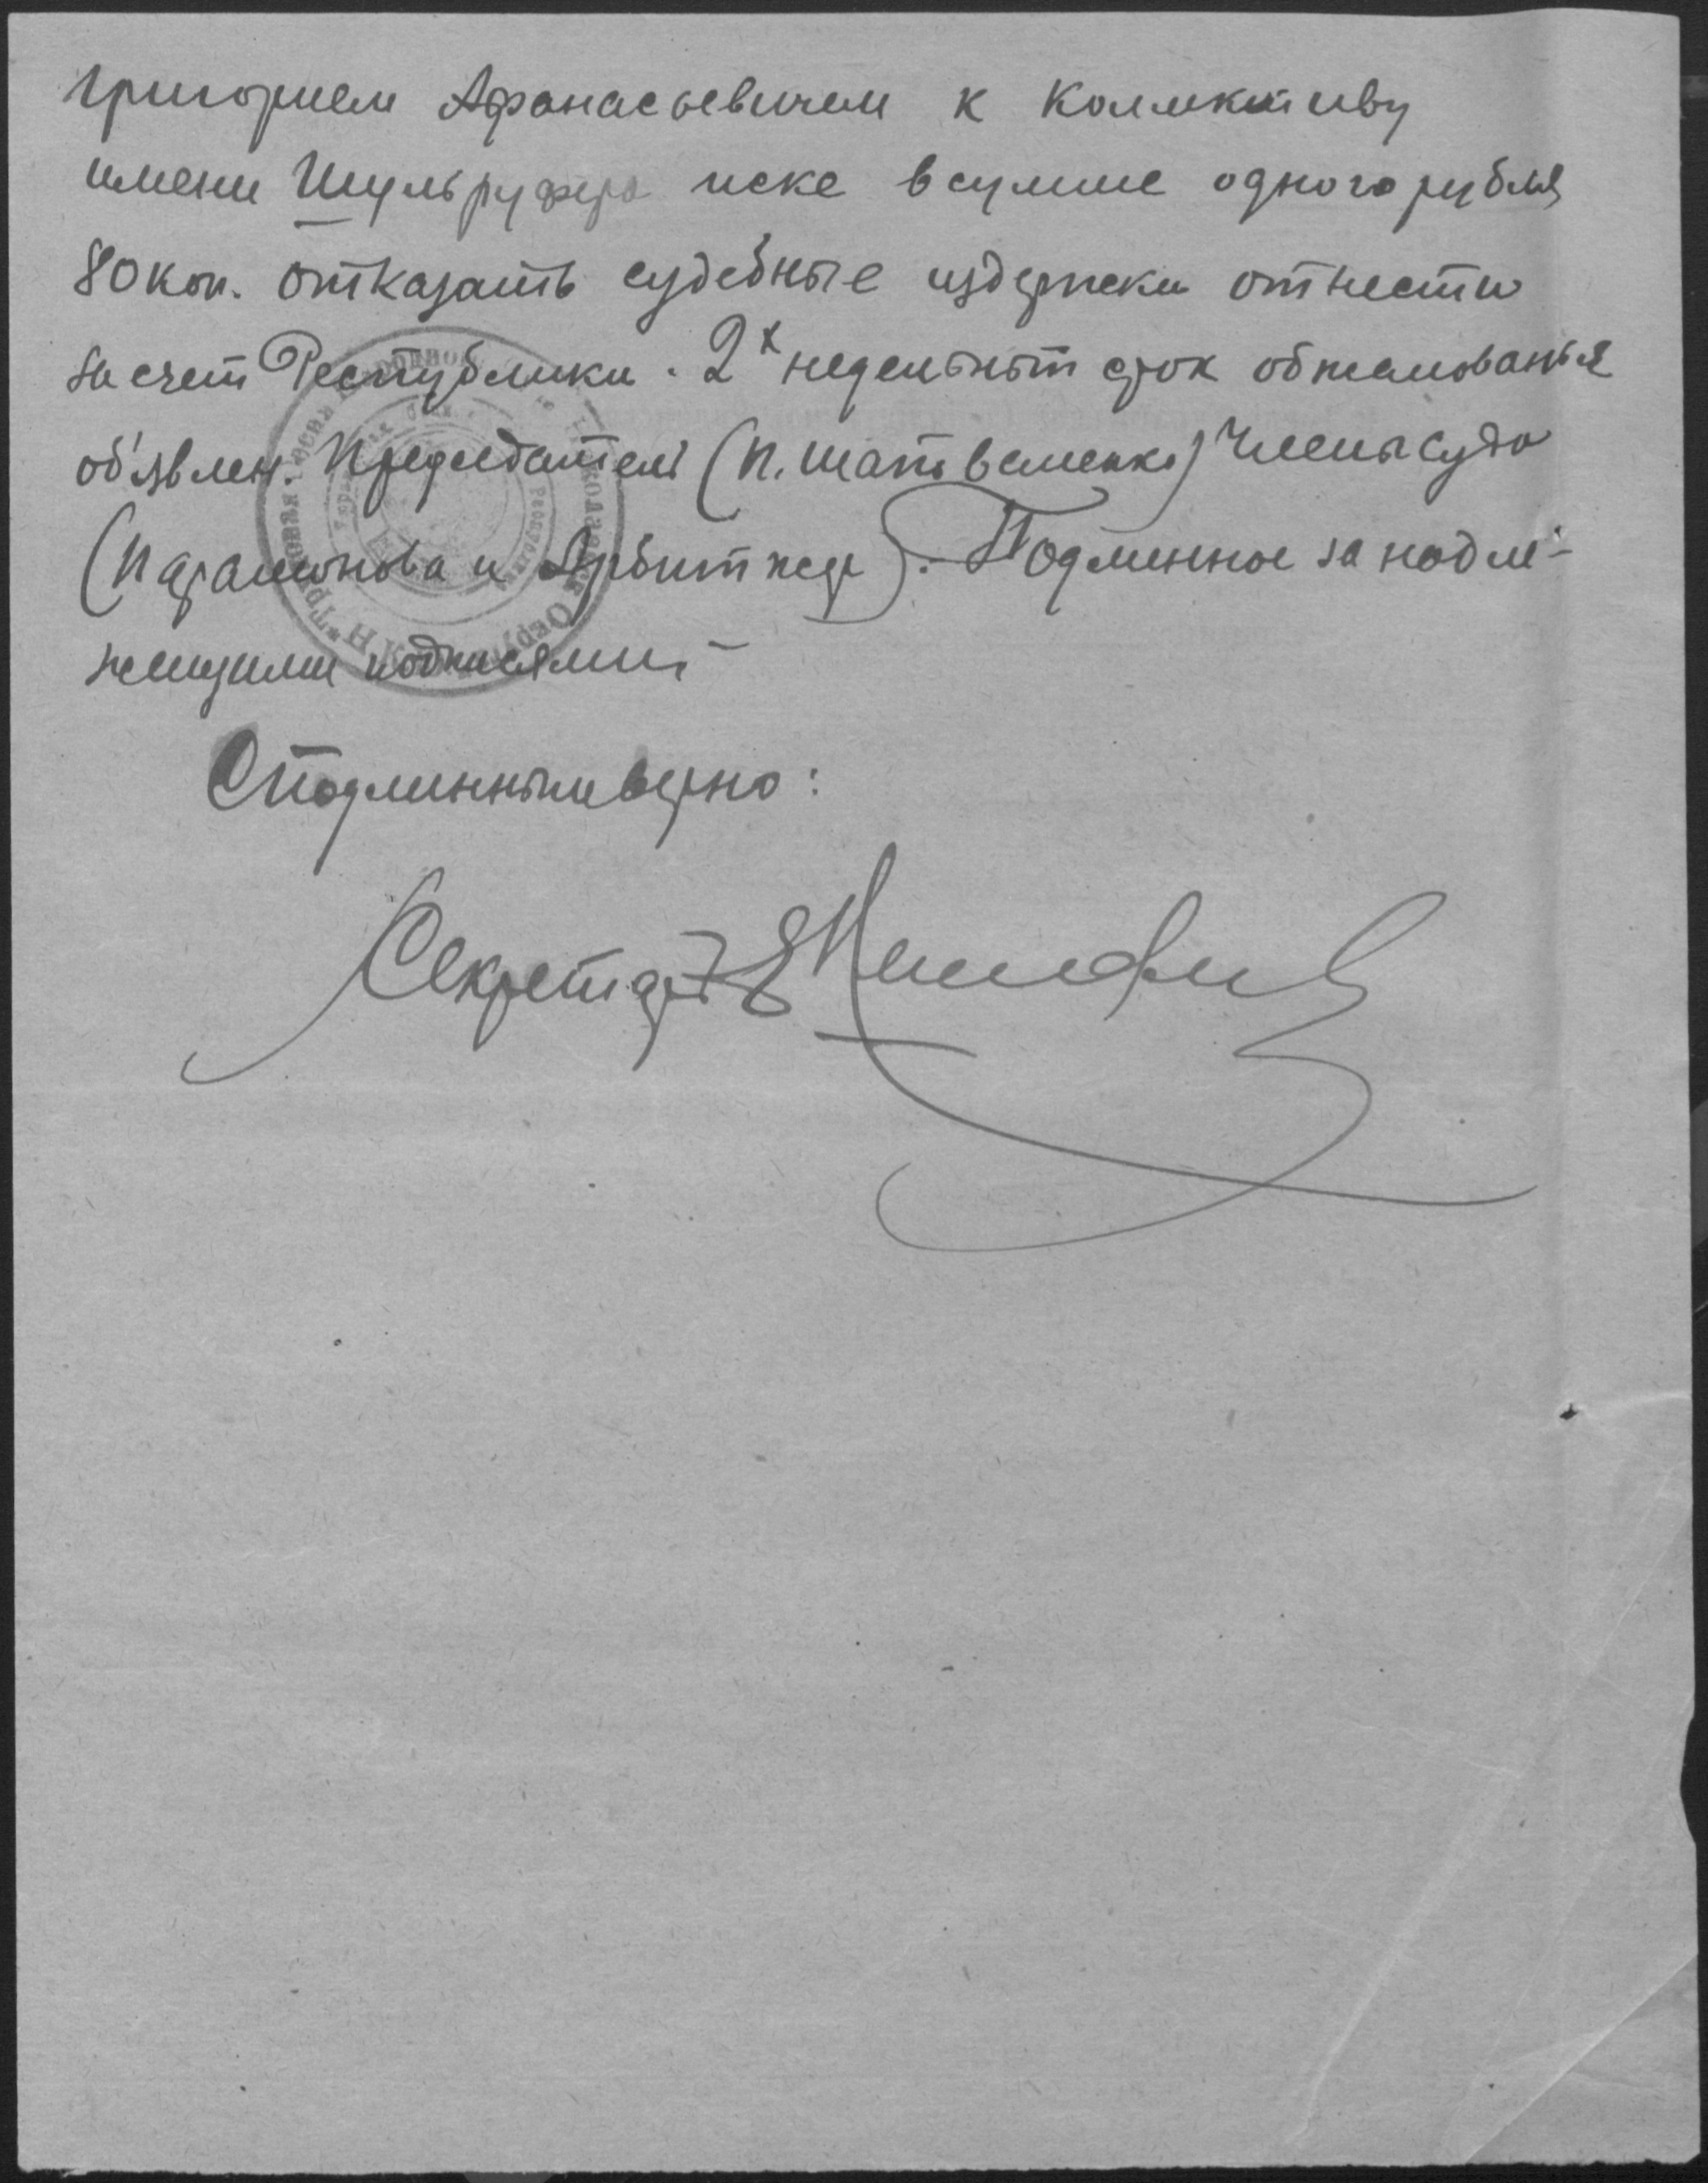 Григорием Афанасьевичем к Коллективу
имени Шульруфера иске в сумме одного рубля
80 коп. отказать судебные издержки отнести
за счет Республики. 2х недельный срок обжалования
об'явлен. Председатель (П. Матвеменко) Члены суда
(Парамонова и Арбитжер). Подлинное за надле-
жещими подписями
С подлинным верно:
Секретарь